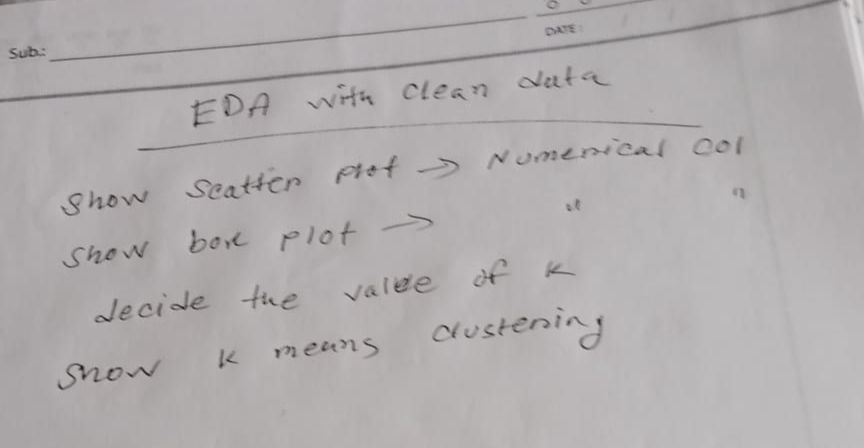 Sub.:
DATE:
EDA with clean data
Show Scatter plot → Numerical col
Show box plot → " "
decide the value of k
Show k means clustering